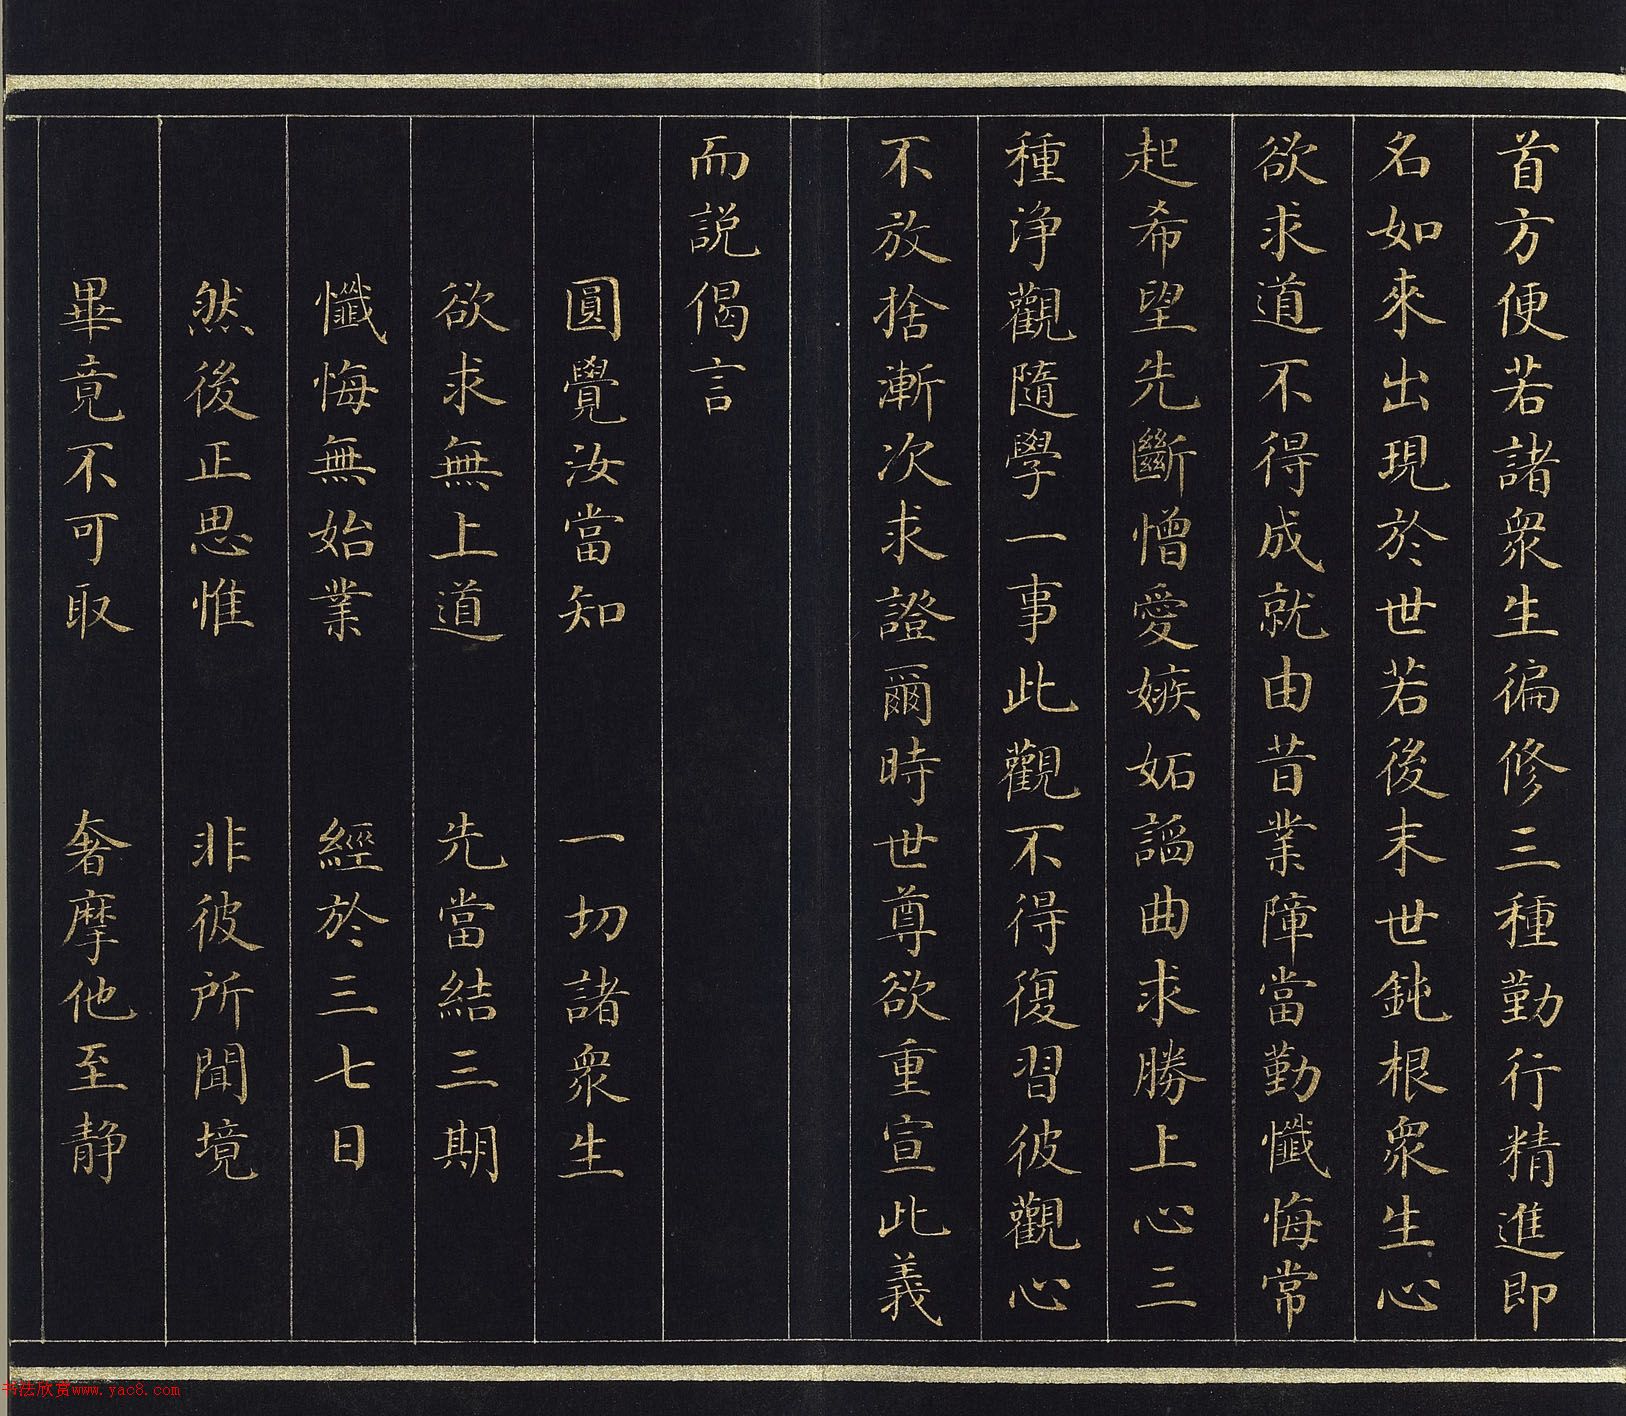 首方便若諸衆生徧修三種勤行精進即
名如來出現於世若後末世鈍根衆生心
欲求道不得成就由昔業障當勤懺悔常
起希望先斷憎愛嫉妬諂曲求勝上心三
種淨觀隨學一事此觀不得復習彼觀心
不放捨漸次求證爾時世尊欲重宣此義
而説偈言
圓覺汝當知 一切諸衆生
欲求無上道 先當結三期
懺悔無始業 經於三七日
然後正思惟 非彼所聞境
畢竟不可取 奢摩他至静
书法欣赏www.yac8.com